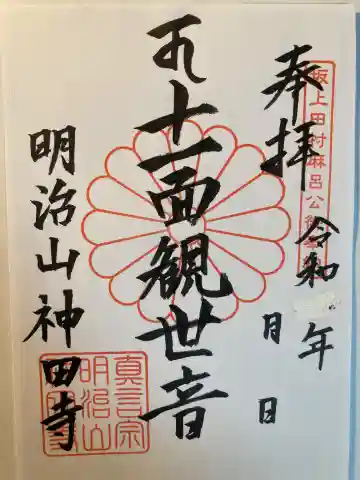 奉拝
坂上田村麻呂公
令和 年
月 日
十一面観世音
明治山神田寺
真言宗
明治山